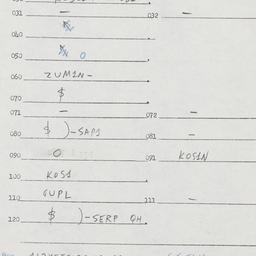 031 — 032 —
040
050 0
060 ZUM1N-
070 $
071 — 072 —
080 $ )-SAP1 081 —
090 0 091 KOS1N
100 KOS1
110 GUPL 111 —
120 $ )-SERP OH.